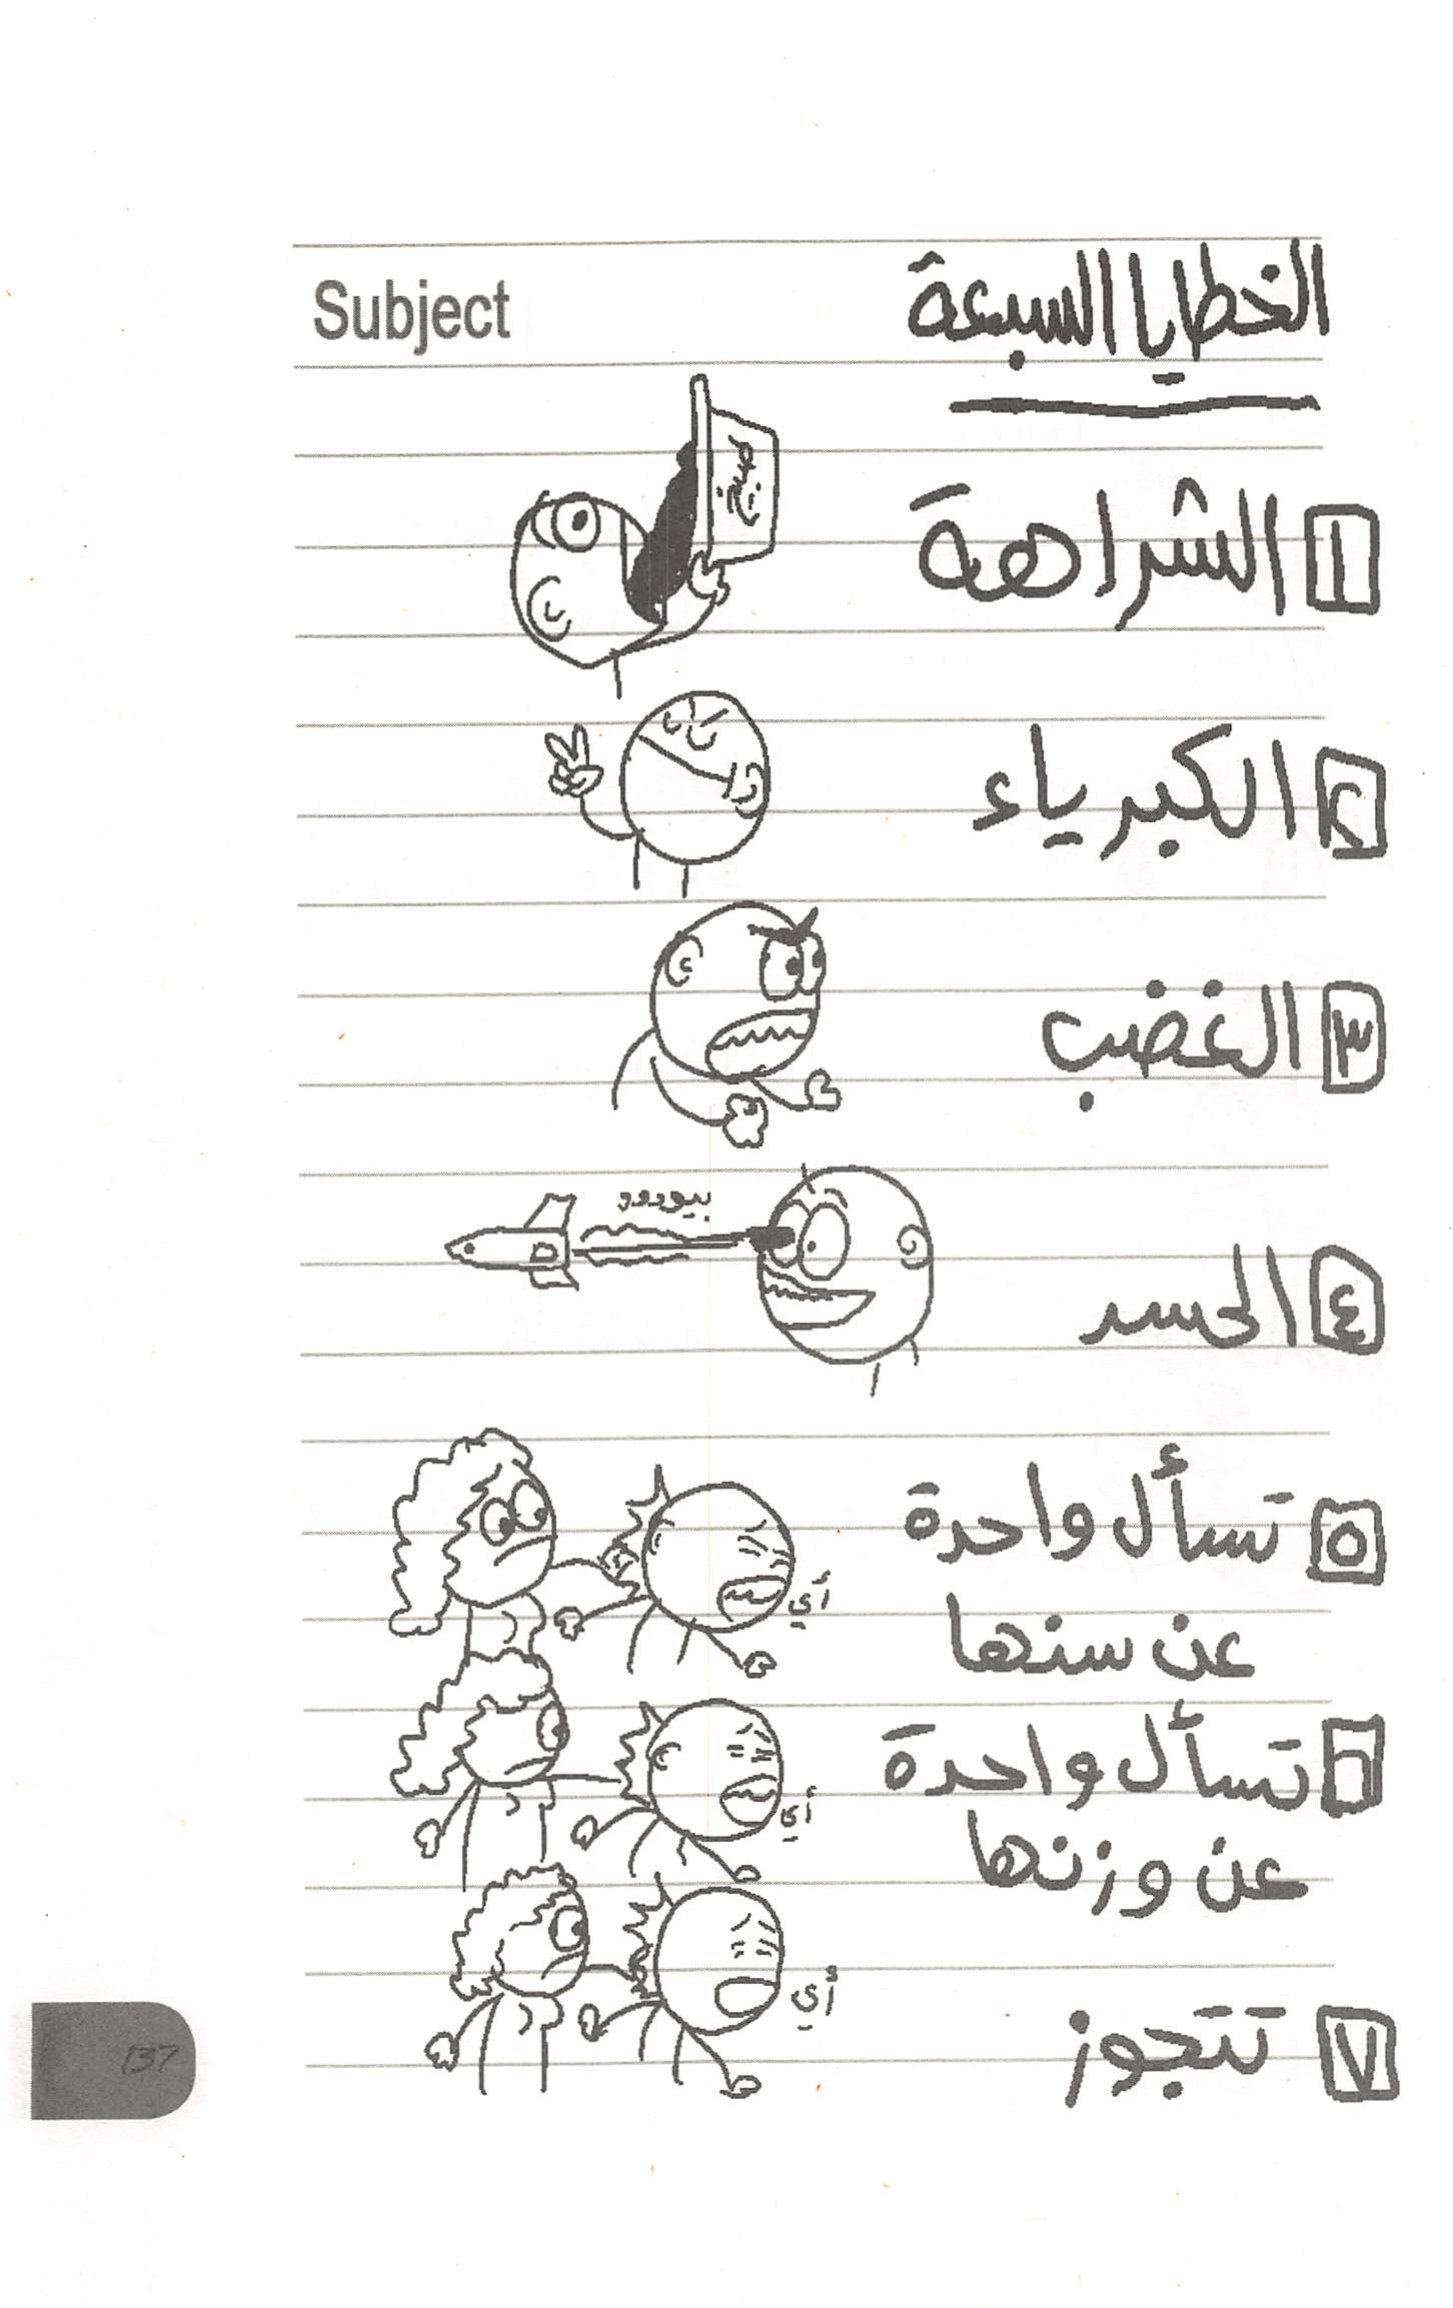 Subject
الخطايا السبعة
١ الشراهة
٢ الكبرياء
٣ الغضب
بيوووو
٤ الحسد
٥ تسأل واحدة
أي
عن سنها
٦ تسأل واحدة
أي
عن وزنها
أي
٧ تتجوز
137